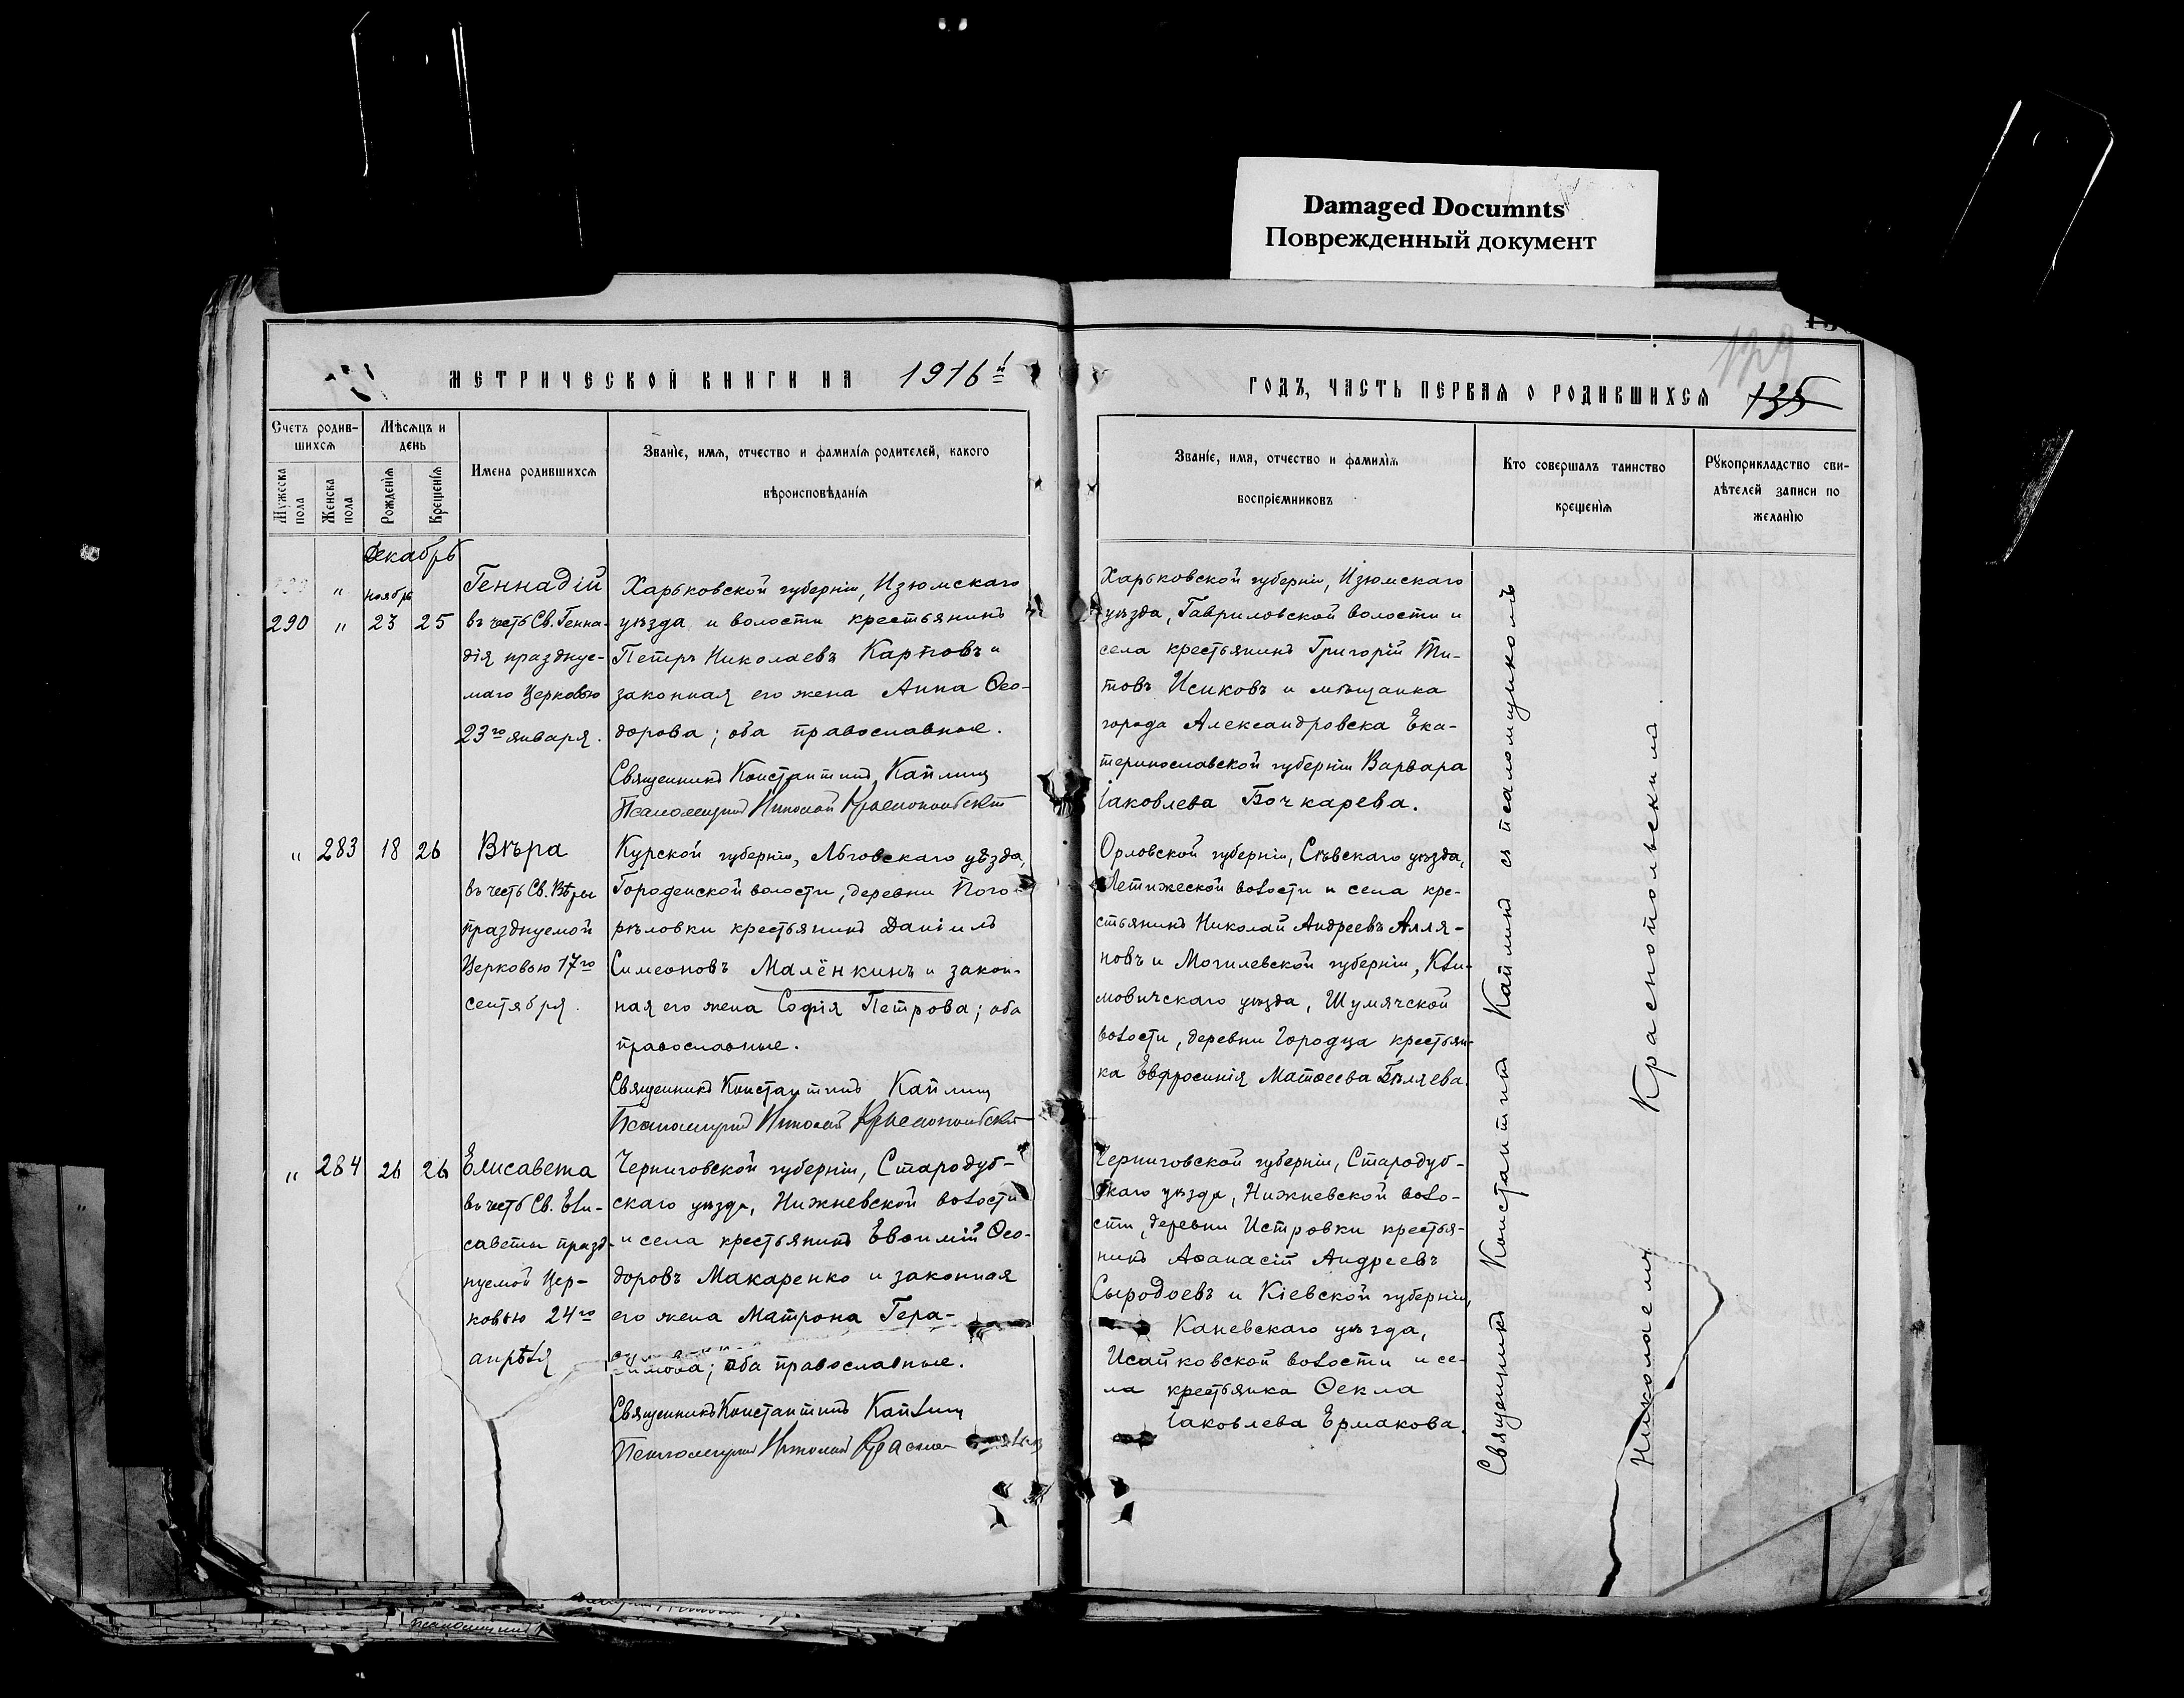 Damaged Documnts
Поврежденный документ
МЕТРИЧЕСКОЙ КНИГИ НА 1916й
ГОДЪ, ЧАСТЬ ПЕРВАЯ О РОДИВШИХСЯ
129
135
Счетъ родив-
шихся
Мужеска
пола
Женска
пола
Мѣсяцъ и
день
Рожденія
Крещенія
Имена родившихся
Званіе, имя, отчество и фамилія родителей, какого
вѣроисповѣданія
Званіе, имя, отчество и фамилія
воспріемниковъ
Кто совершалъ таинство
крещенія
Рукоприкладство сви-
дѣтелей записи по
желанію
Декабрь
ноябрь
290 " 23 25
Геннадій
въ честь Св. Генна-
дія празднуе-
маго Церковью
23го января.
Харьковской губерніи, Изюмскаго
уѣзда и волости крестьянинъ
Петръ Николаевъ Карповъ и
законная его жена Анна Ѳео-
дорова; оба православные.
Священникъ Константинъ Каплин
Псаломщикъ Николай Краснопольскій
Харьковской губерніи, Изюмскаго
уѣзда, Гавриловской волости и
села крестьянинъ Григорій Ти-
товъ Исиковъ и мѣщанка
города Александровска Ека-
теринославской губерніи Варвара
Іаковлева Бочкарева.
" 283 18 26
Вѣра
въ честь Св. Вѣры
празднуемой
Церковью 17го
сентября.
Курской губерніи, Льговскаго уѣзда,
Городенской волости, деревни Пого-
рѣловки крестьянинъ Даніилъ
Симеоновъ Малёнкинъ и закон-
ная его жена Софія Петрова; оба
православные.
Священникъ Константинъ Каплин
Псаломщикъ Николай Краснопольскій
Орловской губерніи, Сѣвскаго уѣзда,
Летижеской волости и села кре-
стьянинъ Николай Андреевъ Алля-
новъ и Могилевской губерніи, Кли-
мовичскаго уѣзда, Шумячской
волости, деревни Городца крестьян-
ка Евфросинія Матѳеева Бѣляева.
" 284 26 26
Елисавета
въ честь Св. Ели-
саветы празд-
нуемой Цер-
ковью 24го
апрѣля
Черниговской губерніи, Стародуб-
скаго уѣзда, Нижневской волости
и села крестьянинъ Евѳимій Ѳео-
доровъ Макаренко и законная
его жена Матрона Гера-
симова; оба православные.
Священникъ Константинъ Каплин
Псаломщикъ Николай Красно
Черниговской губерніи, Стародуб-
скаго уѣзда, Нижневской воло-
сти, деревни Истровки крестья-
нинъ Аѳанасій Андреевъ
Сыродоевъ и Кіевской губерніи,
Каневскаго уѣзда,
Исайковской волости и се-
ла крестьянка Ѳекла
Іаковлева Ермакова.
Священникъ Константинъ Каплинъ съ псаломщикомъ
Николаемъ Краснопольскимъ.